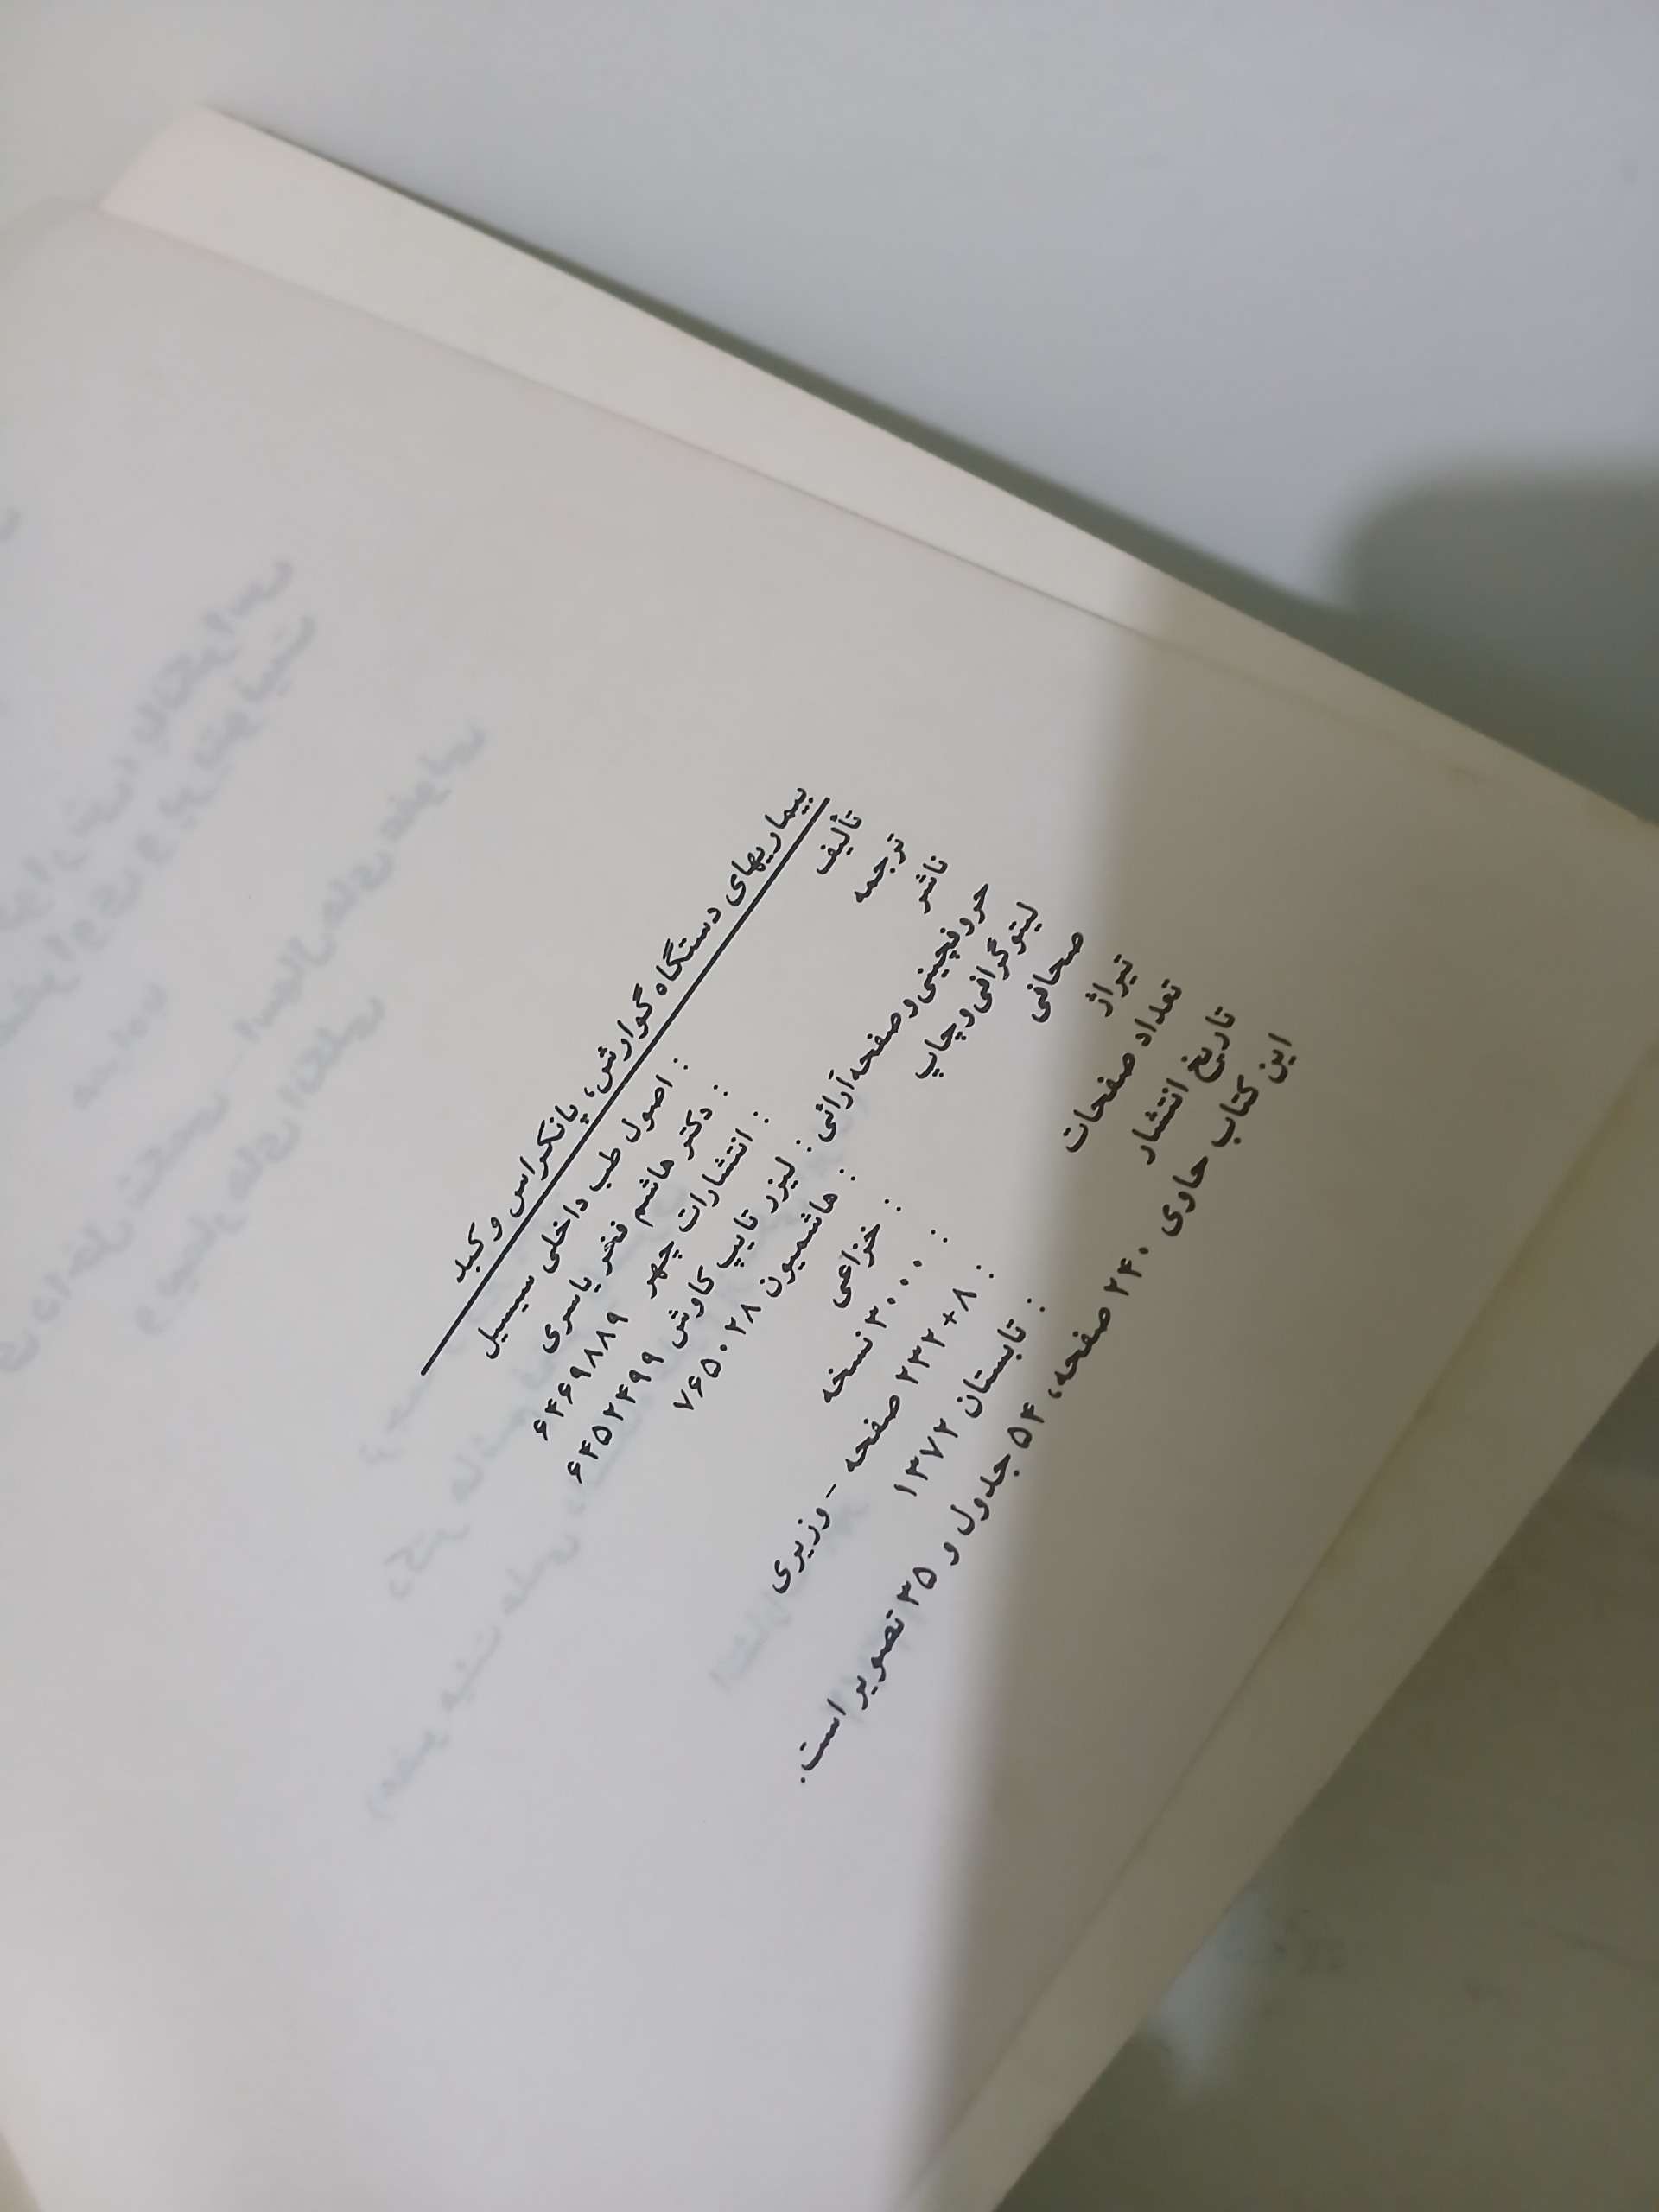 بیماریهای دستگاه گوارش، پانکراس و کبد
تألیف : اصول طب داخلی سیسیل
ترجمه : دکتر هاشم فخر یاسری
ناشر : انتشارات چهر ۶۴۶۹۸۸۹
حروفچینی و صفحه‌آرائی : لیزر تایپ کاوش ۶۴۵۲۴۹۹
لیتوگرافی و چاپ : هاشمیون ۷۶۵۰۲۸
صحافی : خزاعی
تیراژ : ۳۰۰۰ نسخه
تعداد صفحات : ۸+۲۳۲ صفحه - وزیری
تاریخ انتشار : تابستان ۱۳۷۲
این کتاب حاوی ۲۴۰ صفحه، ۵۴ جدول و ۳۵ تصویر است.